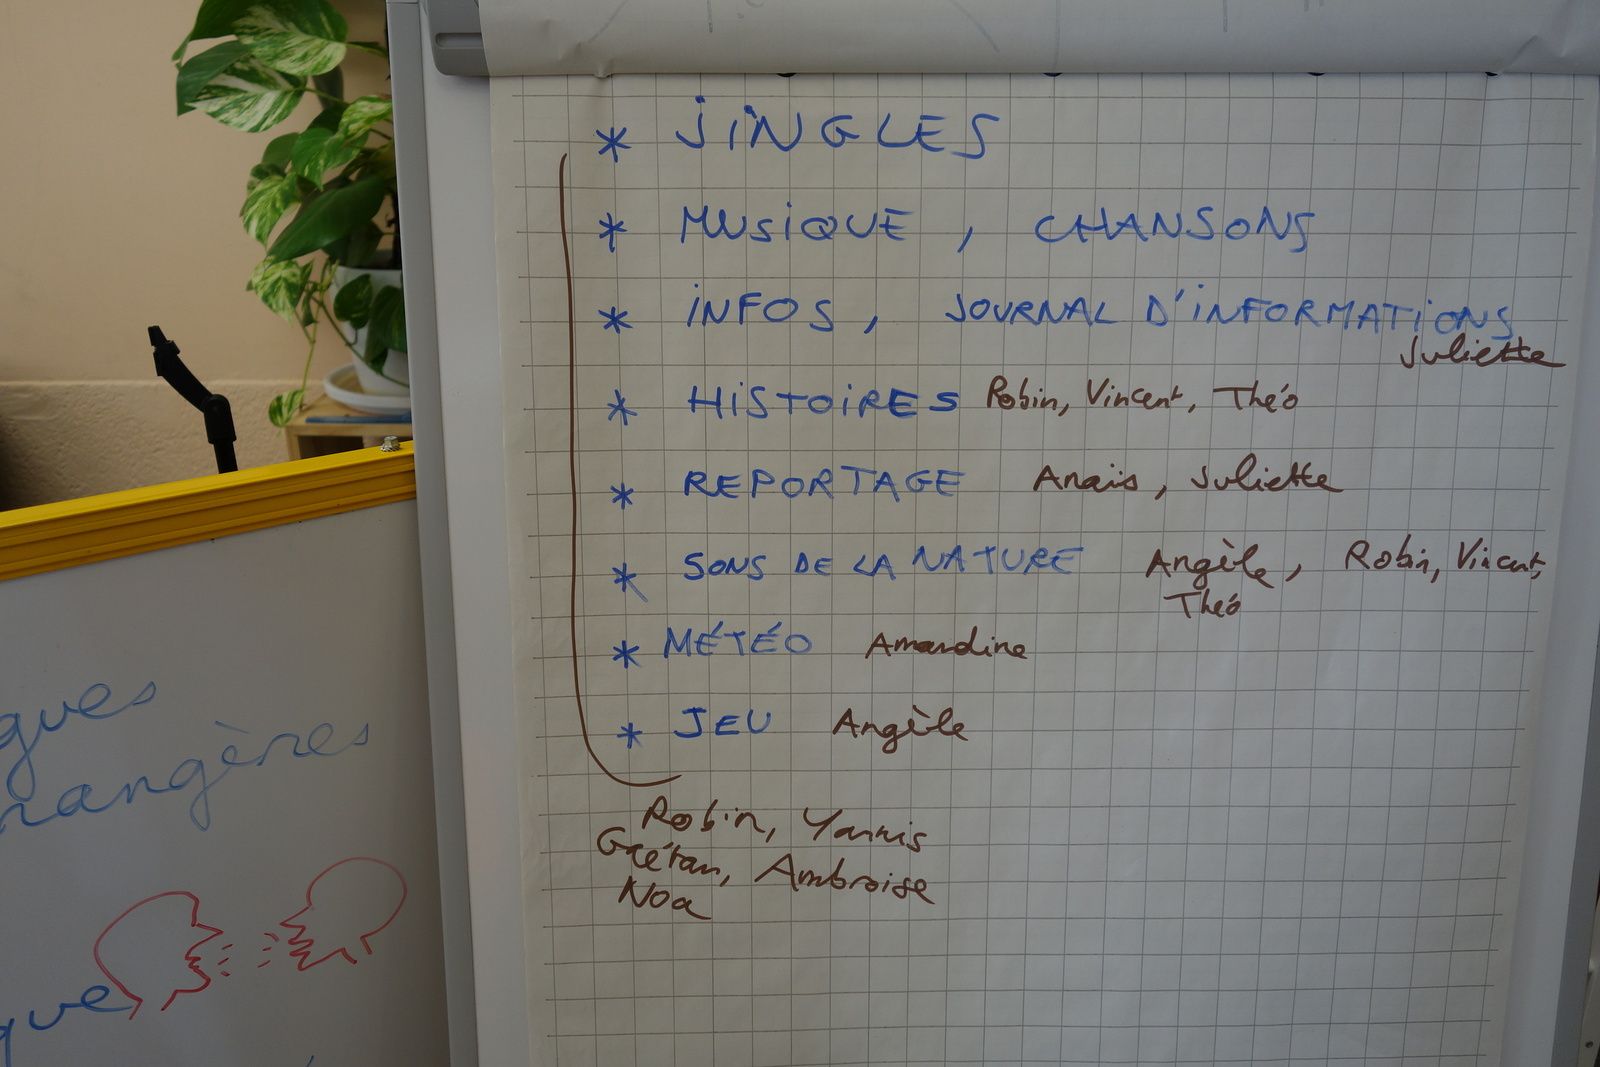 * JINGLES
* MUSIQUE, CHANSONS
* INFOS, JOURNAL D'INFORMATIONS
Juliette
* HISTOIRES Robin, Vincent, Théo
* REPORTAGE Anaïs, Juliette
* SONS DE LA NATURE Angèle, Robin, Vincent,
Théo
* MÉTÉO Amandine
* JEU Angèle
Robin, Yannis
Gaétan, Ambroise
Noa
gues
rangères
que